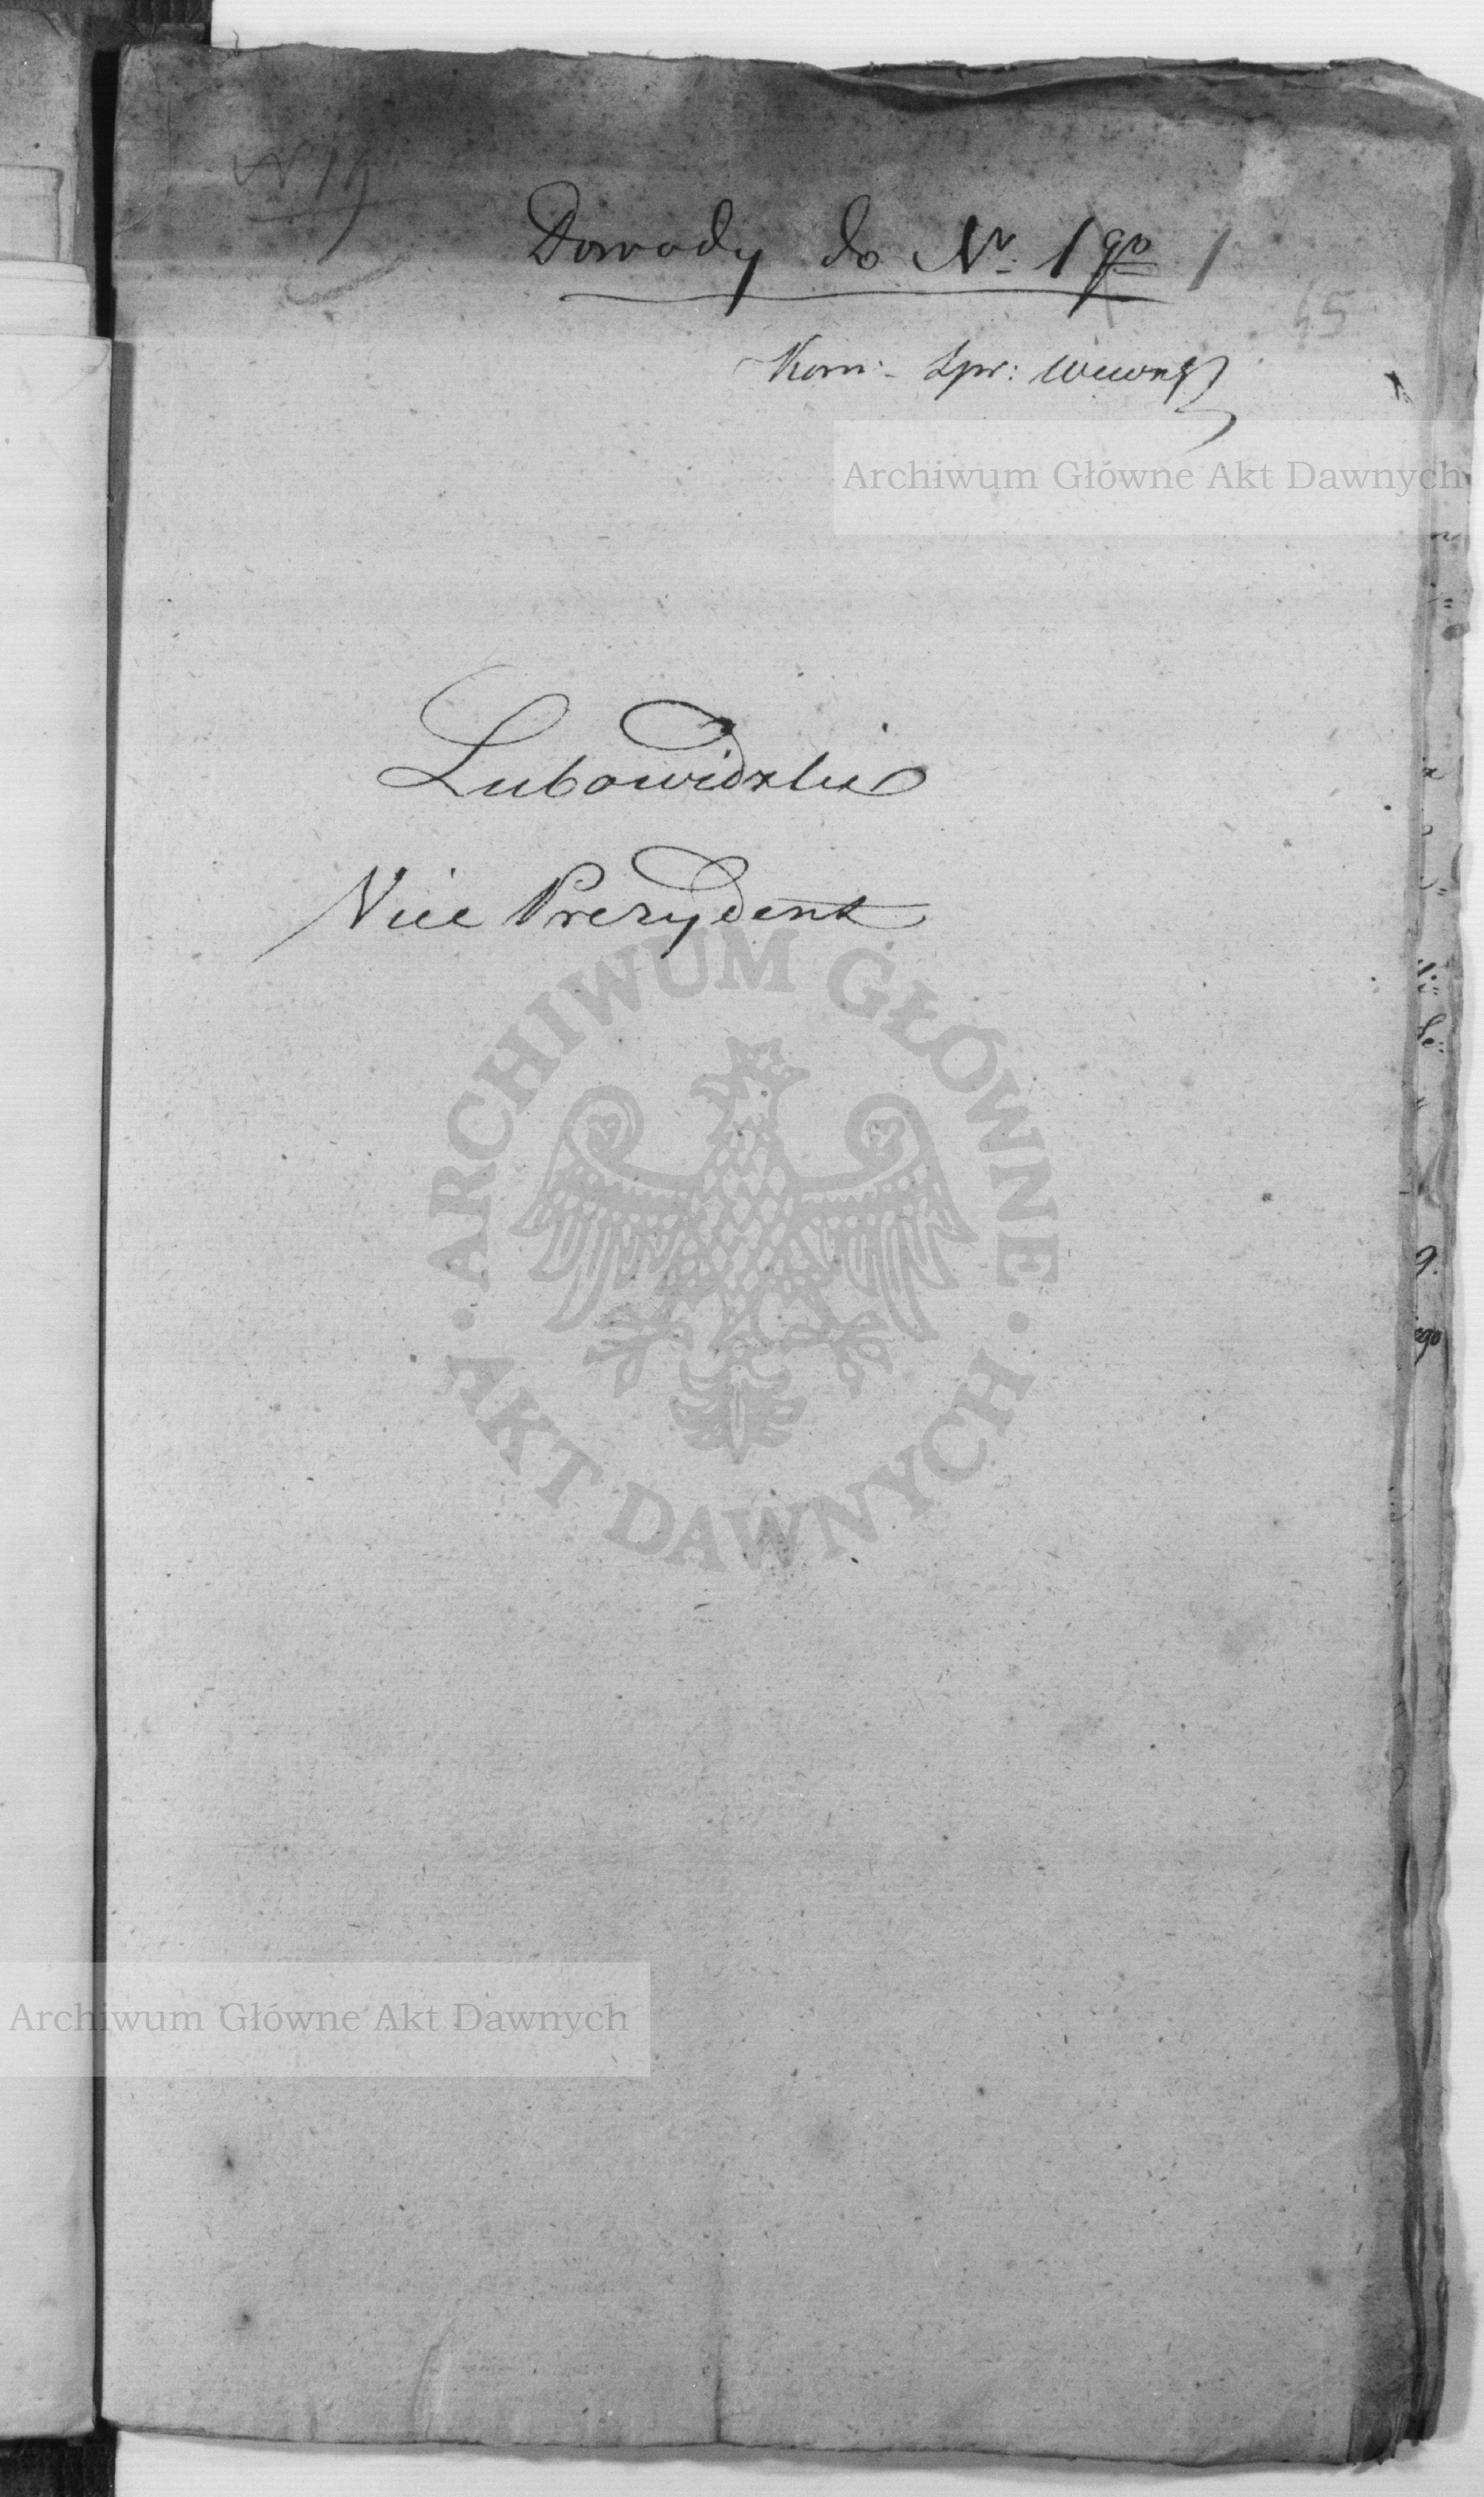 Dowody do Nr. 1go
65
Kom: Spr: Wewn
Archiwum Główne Akt Dawnych
Lubowidzki
Vice Prezydent
ARCHIWUM GŁÓWNE
AKT DAWNYCH
Archiwum Główne Akt Dawnych